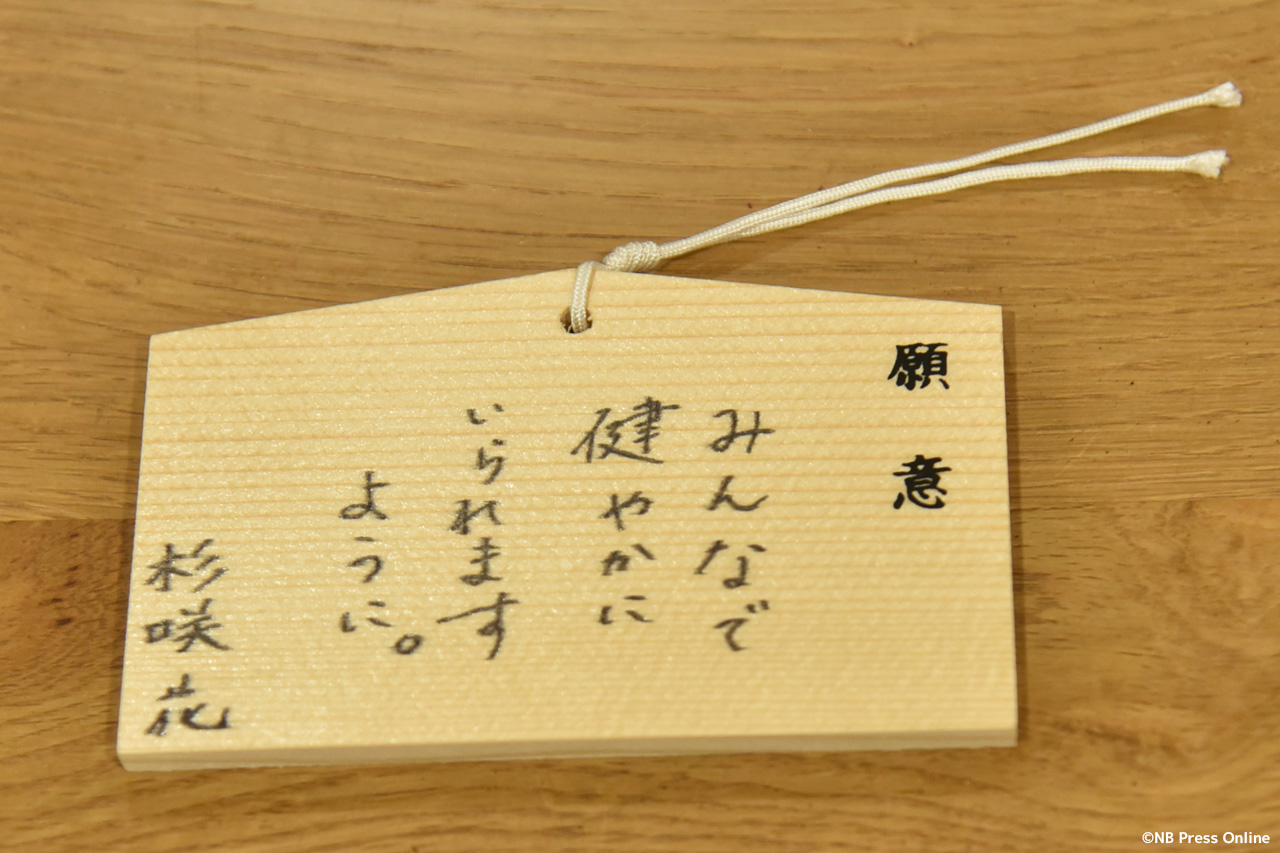 願意
みんなで
健やかに
いられます
ように。
杉咲花
©NB Press Online